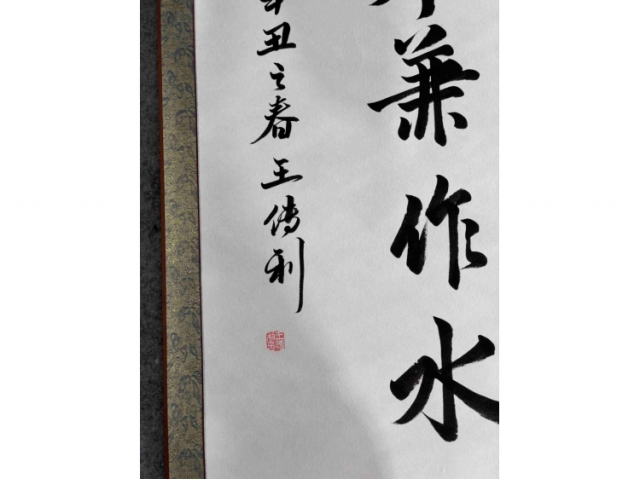 兼作水
辛丑之春王傳利